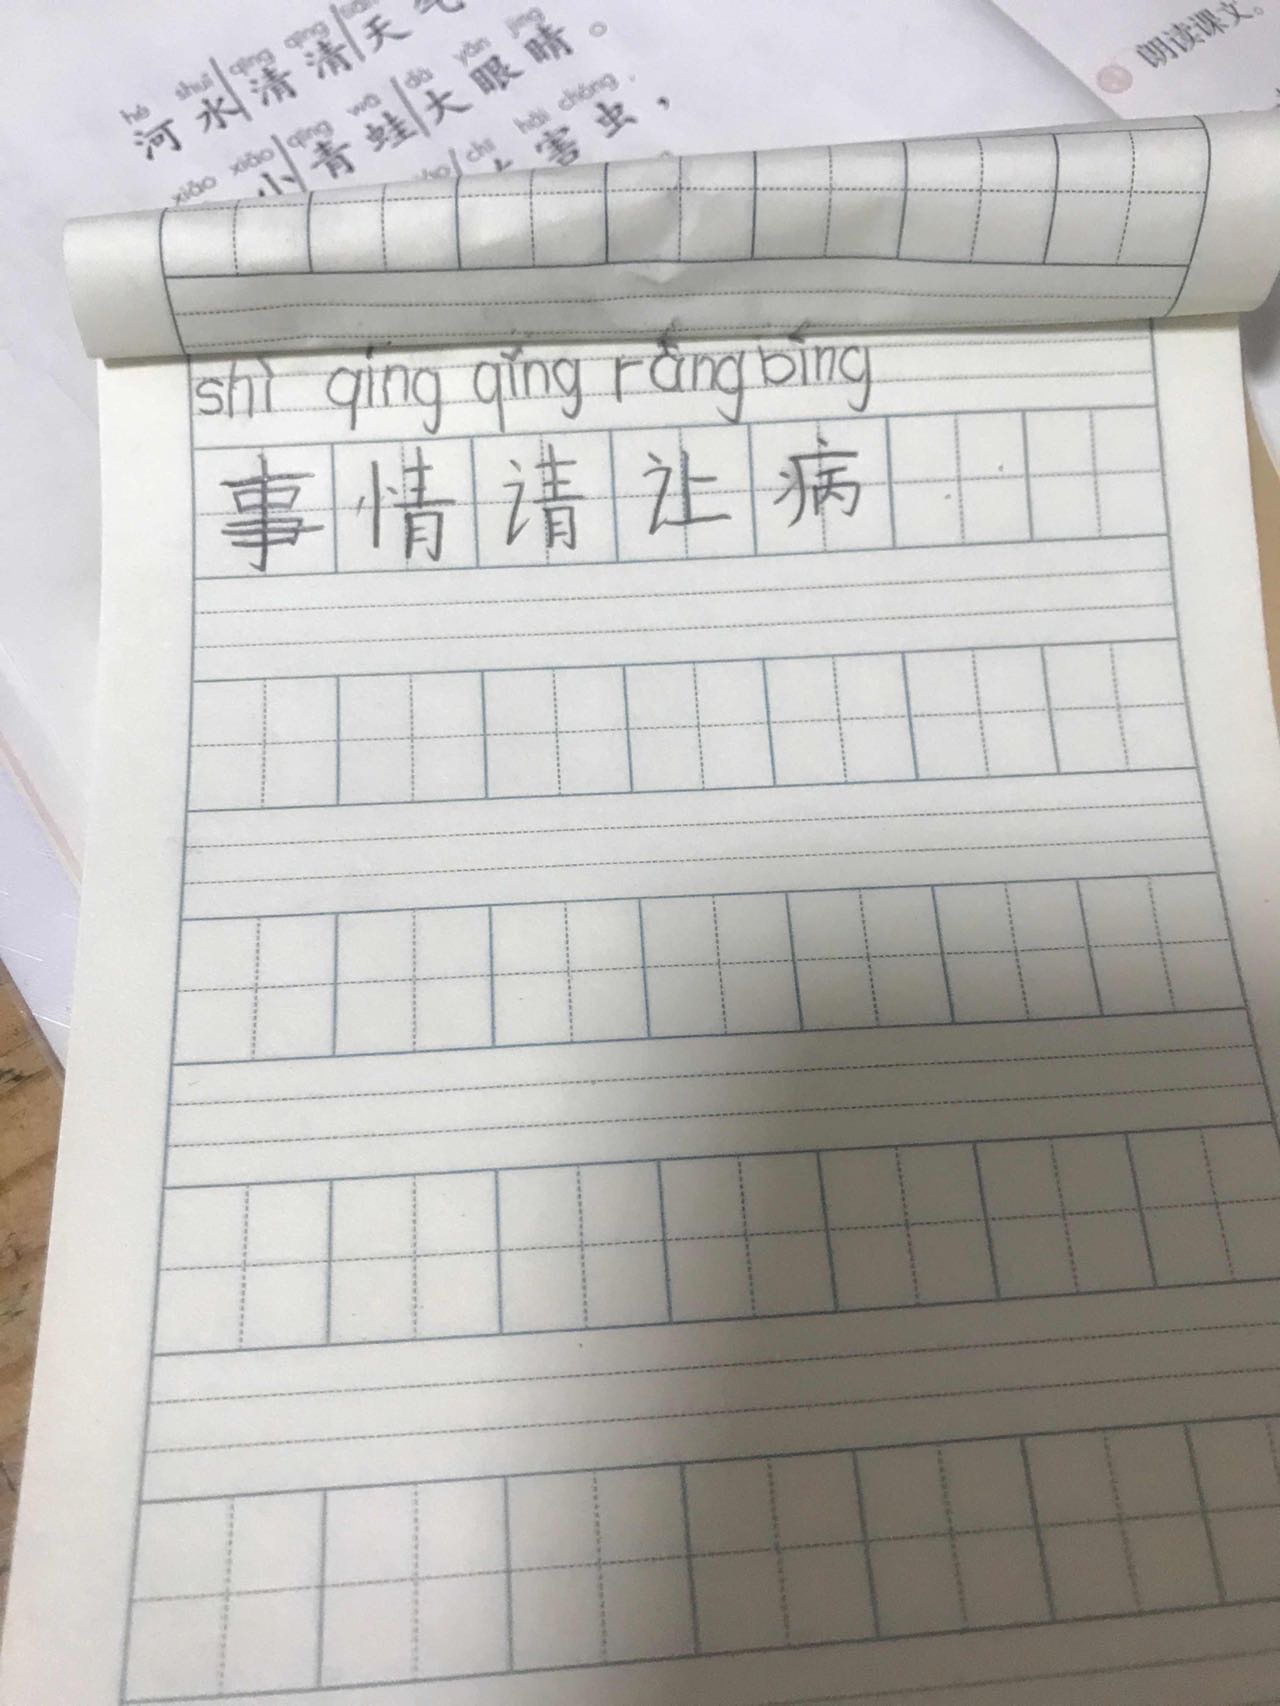 hé shuǐ qīng qīng
河水清清天气
xiǎo qīng wā dà yǎn jīng
小青蛙大眼睛。
chī hài chóng
害虫，
朗读课文。
shì qíng qǐng ràng bìng
事情请让病